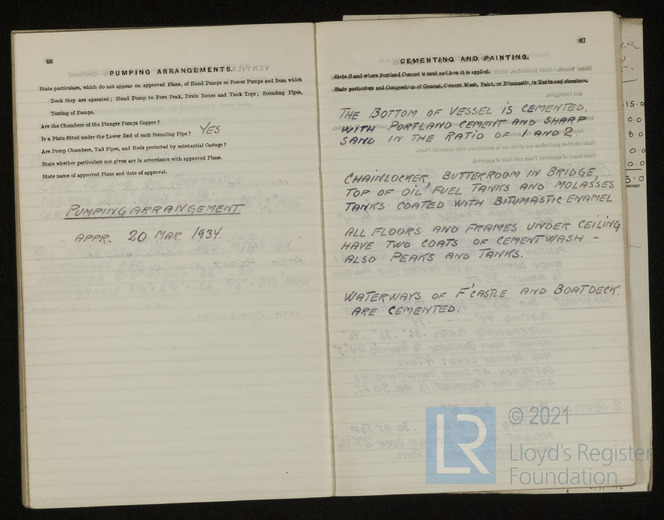 66
PUMPING ARRANGEMENTS.
State particulars, which do not appear on approved Plans, of Hand Pumps or Power Pumps and from which
Deck they are operated; Hand Pump to Fore Peak, Drain Boxes and Tank Tops; Sounding Pipes,
Testing of Pumps.
Are the Chambers of the Plunger Pumps Copper?
Is a Plate fitted under the Lower End of each Sounding Pipe? YES
Are Pump Chambers, Tail Pipes, and Rods protected by substantial Casings?
State whether particulars not given are in accordance with approved Plans.
State name of approved Plans and date of approval.
PUMPING ARRANGEMENT
APPR. 20 MAR 1934
67
CEMENTING AND PAINTING.
State if and where Portland Cement is used and how it is applied.
State particulars and Composition of Cement, Cement Wash, Paint, or Bitumastic, in Tanks and elsewhere.
THE BOTTOM OF VESSEL IS CEMENTED.
WITH PORTLAND CEMENT AND SHARP
SAND IN THE RATIO OF 1 AND 2
CHAINLOCKER, BUTTERROOM IN BRIDGE,
TOP OF OIL FUEL TANKS AND MOLASSES
TANKS COATED WITH BITUMASTIC ENAMEL
ALL FLOORS AND FRAMES UNDER CEILING
HAVE TWO COATS OF CEMENTWASH -
ALSO PEAKS AND TANKS.
WATERWAYS OF F'CASTLE AND BOATDECK
ARE CEMENTED.
LR
© 2021
Lloyd's Register
Foundation